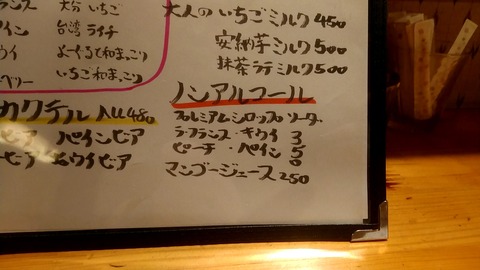 ランス 大分 いちご
イン 台湾 ライチ
ウイ よーぐると和まっこり
ベリー いちご和まっこり
カクテル ALL480
ピア パインビア
ービア キウイビア
大人の いちごミルク 450
安納芋ミルク 500
抹茶ラテミルク 500
ノンアルコール
プレミアムシロップソーダ
ラ・フランス・キウイ
ピーチ ・パイン
350
マンゴージュース 250